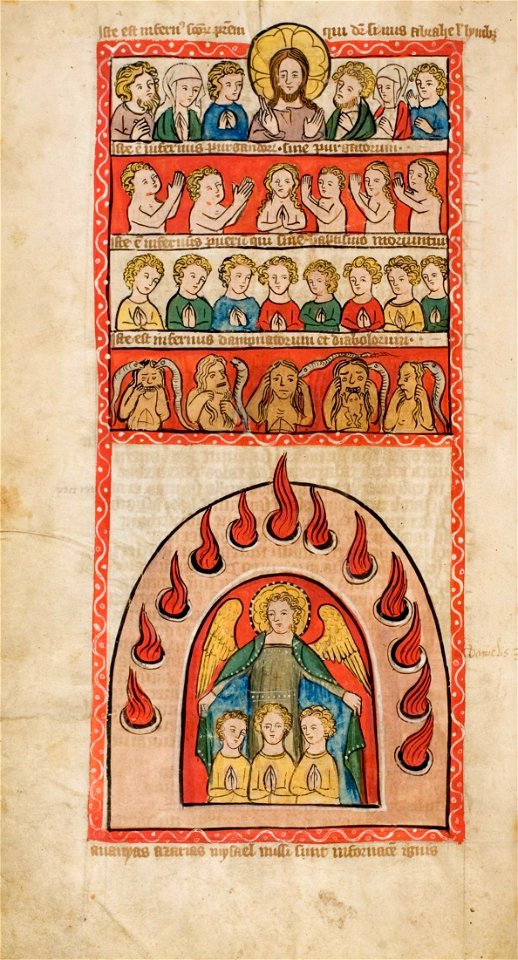 Iste est infern⁹ scōr pr̄em qui dr̄ sinus abrahe l' lymb⁹
Iste ē infernus purgandoꝝ · siue purgatorium ·
Iste ē infernus pueroꝝ qui sine baptismo moriuntur
Iste est infernus dampnatorum et diabolorum ·
Danielis 3
ananyas azarias mysael missi sunt in fornacē ignis